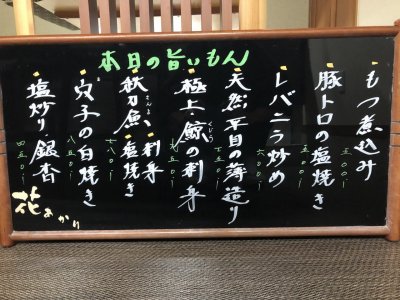 本日の旨いもん
もつ煮込み
豚トロの塩焼き
五〇〇ー
レバニラ炒め
六〇〇ー
天然平目の薄造り
極上・鯨の刺身
くじら
秋刀魚・刺身・塩焼き
さんま
七八〇ー
穴子の白焼き
八五〇ー
塩炒り・銀杏
四五〇ー
花あかり